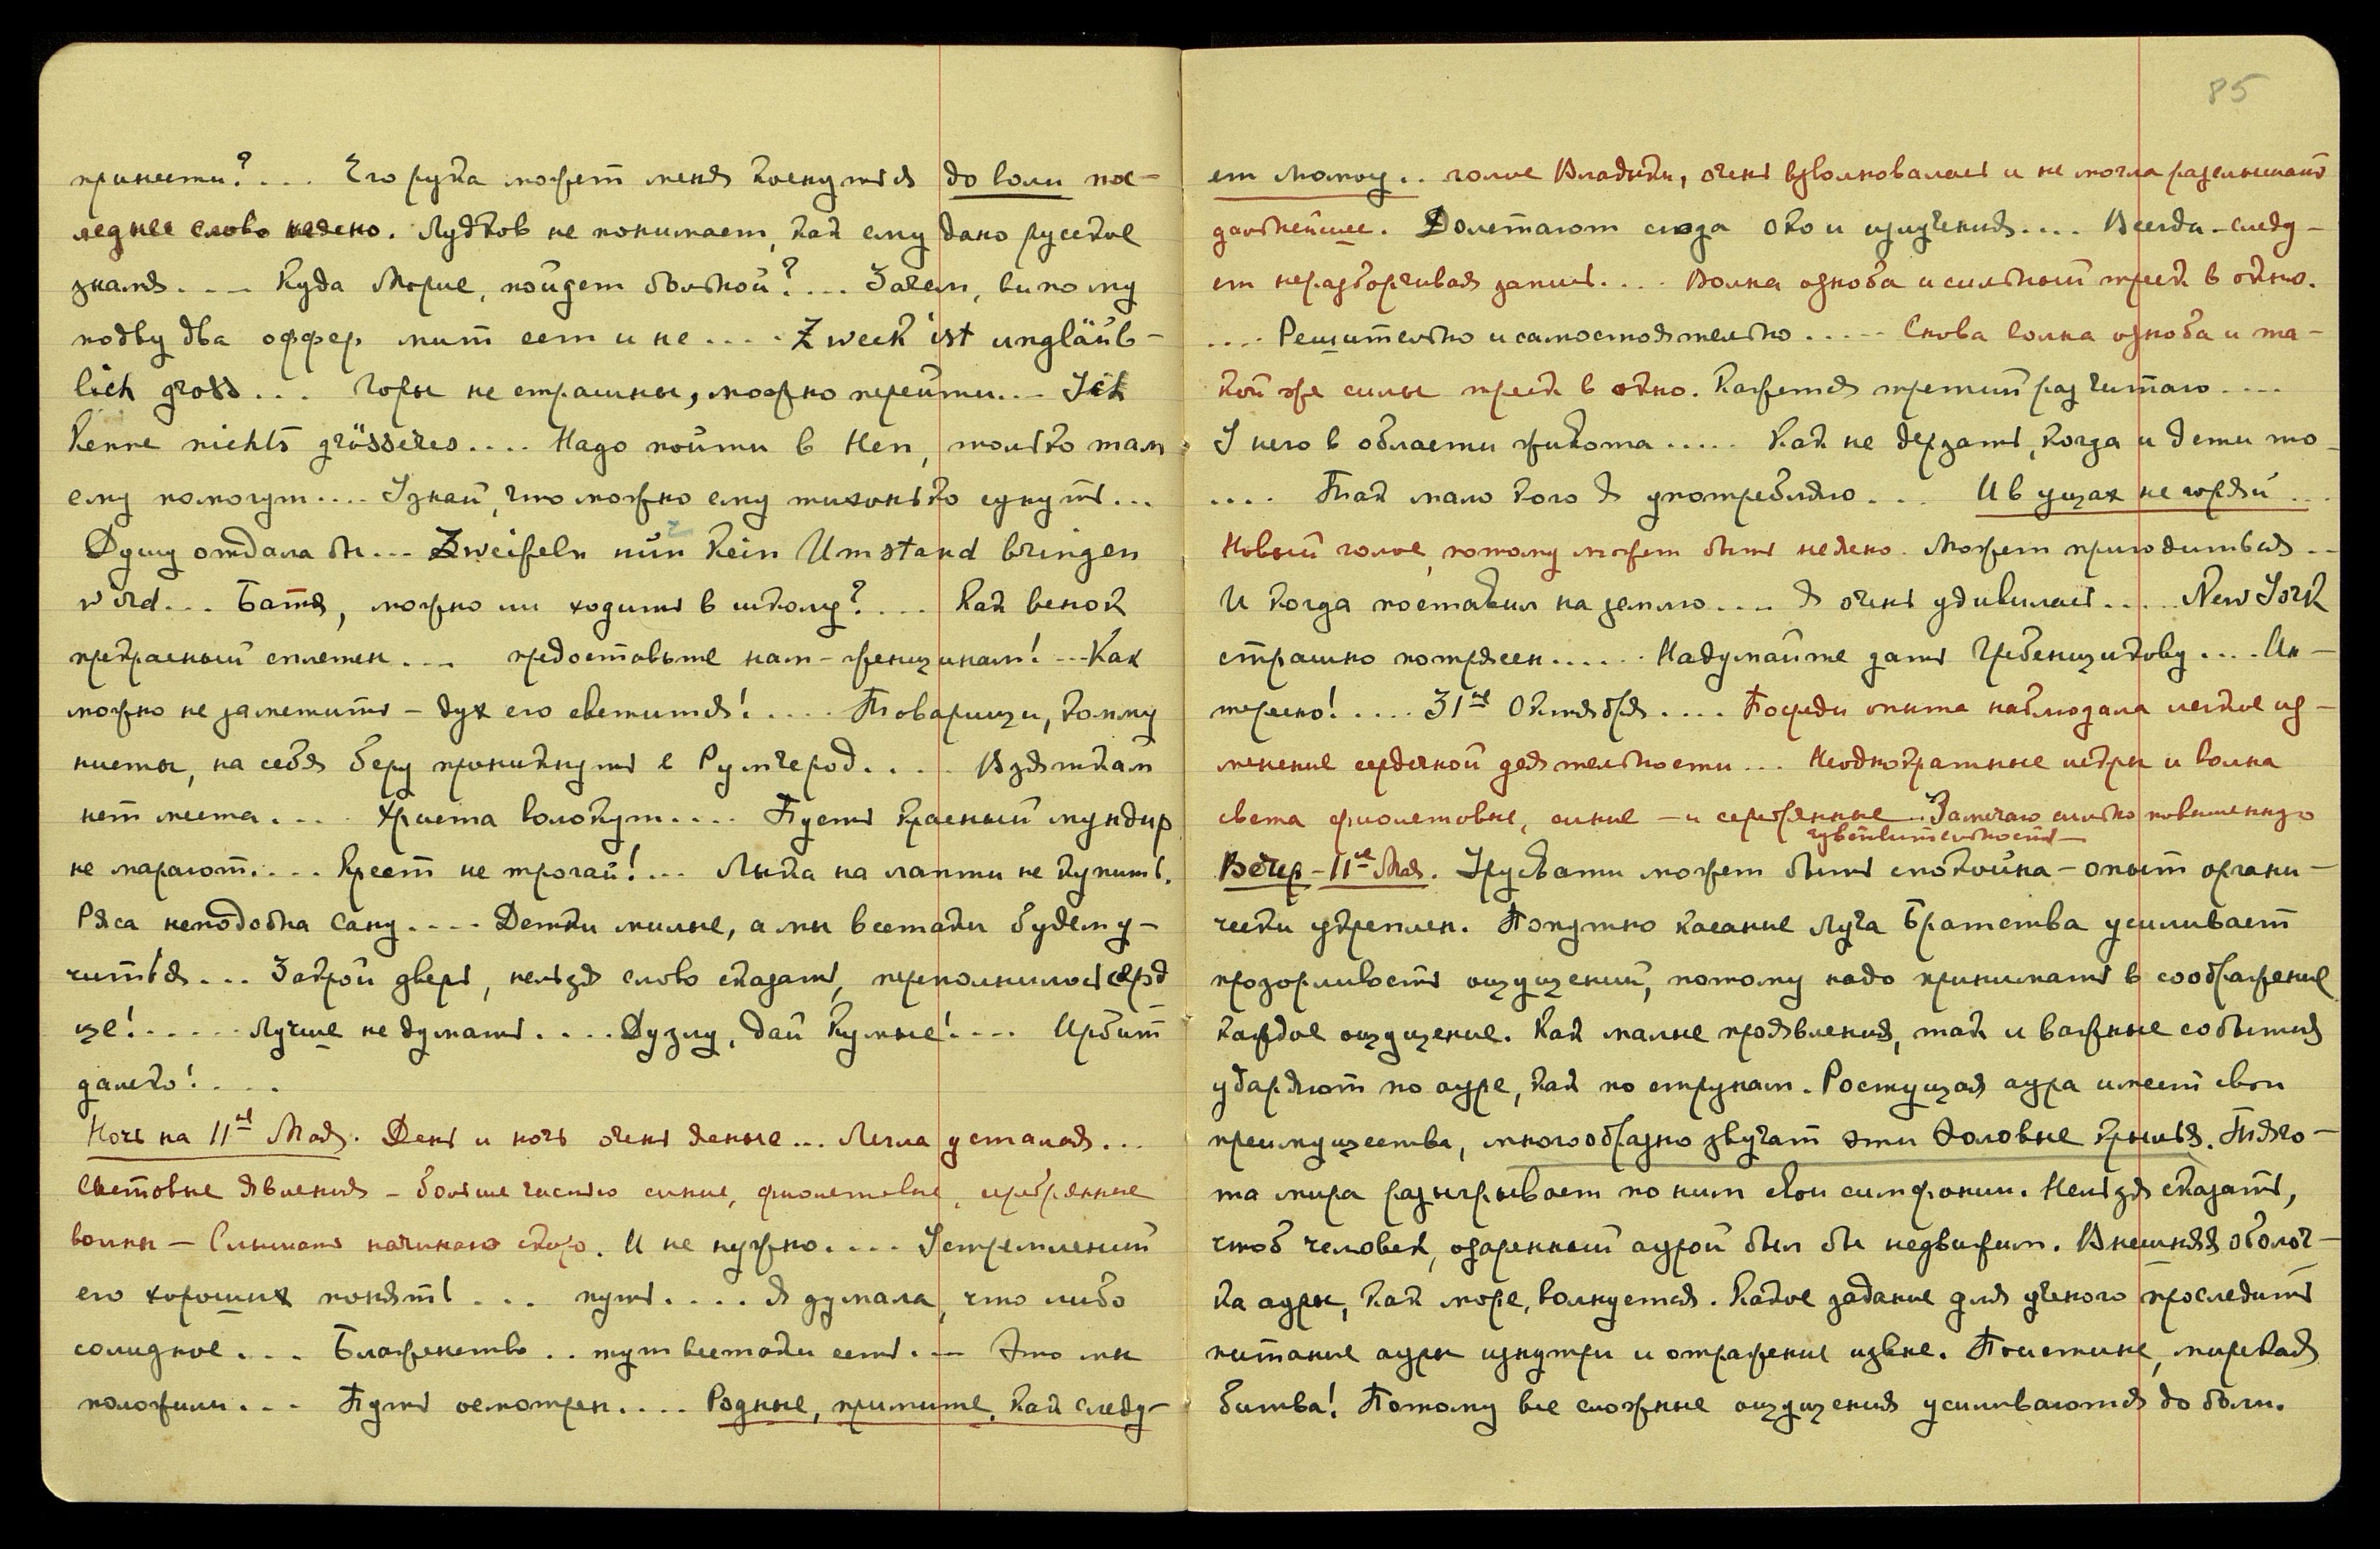 принести?.... Его рука может меня коснуться до воли пос-
леднее слово неясно. Лудков не понимает, как ему дано русское
знамя.... Куда Морис, пойдет больной?... Зачем, 
подву два оффер мит еет и не.... Zweck ist unglaüb-
lich gross... Горы не страшны, можно перейти.... Ich
kenne nichts grösseres.... Надо пойти в Неп, только там
ему помогут.... Узнай, что можно ему тихонько сунуть...
Душу отдала бы... Zweifeln nun kein Umstand bringen
wird... Батя, можно ли ходить в школу?... Как венок
прекрасный сплетен.... предоставьте нам-женщинам! ...Как
можно не заметить – дух его светится!.... Товарищи, комму
нисты, на себя беру проникнуть в Румчерод.... Взяткам
нет места.... Христа волокут.... Пусть красный мундир
не марают.... Крест не трогай!... Лыка на лапти не купить.
Ряса неподобна сану.... Детки милые, а мы всетаки будем у-
читься... Закрой дверь, нельзя слово сказать, переполнилось серд
це!..... Лучше не думать.... Дузлу, дай кумыс!.... Ирбит
далеко!....
Ночь на 11ое Мая. День и ночь очень ясные... Легла усталая...
Световые явления – больше частью синие, фиолетовые, серебрянные
волны – Слышать начинаю скоро. И не нужно.... Устремлений
его хороших понять ... путь.... Я думала, что либо
солидное... Блаженство.. тут всетаки есть.... Это мы
положили... Путь осмотрен.... Родные, примите, как следу-
85
ет Мощь.. голос Владыки, очень взволновалась и не могла разслышать
дальнейшее. Долетают сюда Око и излучения.... Всегда-след-
ет неразборчивая запись.... Волна озноба и сильный треск в окно.
.... Решительно и самостоятельно..... Снова волна озноба и та-
кой же силы треск в окно. Кажется третий раз читаю....
У него в области живота..... Как не дерзать, когда и дети то-
.... Так мало кого я употребляю... И в ущах не горяй...
Новый голос, потому может быть неясно. Может пригодиться..
И когда поставил на землю.... Я очень удивилась..... New York
страшно потрясен...... Надумайте дать Гребенщикову.... Ин-
тересно!.... 31ое Октября.... Посреди опыта наблюдала легкое из-
менение сердечной деятельности... Неоднократные искры и волна
света фиолетовые, синие – и серебрянные. Замечаю сильно повышенную
чувствительность –
Вечер – 11ое Мая. Урусвати может быть спокойна – опыт органи-
чески укреплен. Попутно касание Луча Братства усиливает
прозорливость ощущений, потому надо принимать в соображение
каждое ощущение. Как малые проявления, так и важные события
ударяют по ауре, как по струнам. Ростущая аура имеет свои
преимущества, многообразно звучат эти Эоловые крылья. Тяго-
та мира разыгрывает по ним свои симфонии. Нельзя сказать,
чтоб человек, озаренный аурой был бы недвижим. Внешняя оболоч-
ка ауры, как море, волнуется. Какое задание для ученого проследить
питание ауры изнутри и отражение извне. Поистине, мировая
битва! Потому все сложные ощущения усиливаются до боли.